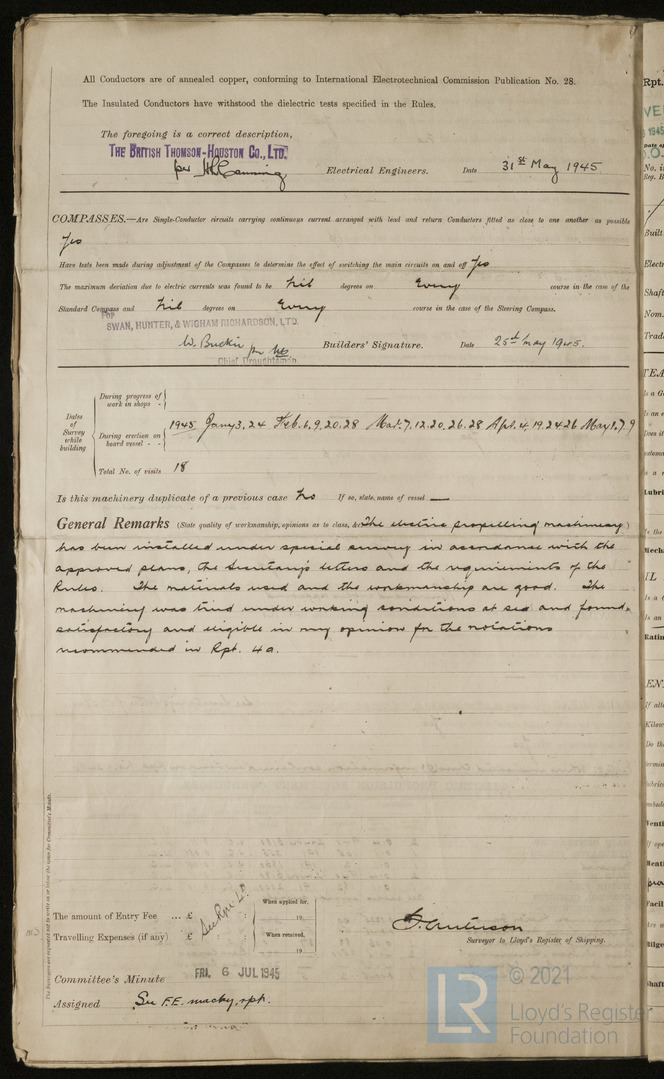 All Conductors are of annealed copper, conforming to International Electrotechnical Commission Publication No. 28.
The Insulated Conductors have withstood the dielectric tests specified in the Rules.
The foregoing is a correct description,
THE BRITISH THOMSON-HOUSTON CO., LTD.
per Electrical Engineers. Date 31st May 1945
COMPASSES.—Are Single-Conductor circuits carrying continuous current arranged with lead and return Conductors fitted as close to one another as possible
Yes
Have tests been made during adjustment of the Compasses to determine the effect of switching the main circuits on and off Yes
The maximum deviation due to electric currents was found to be Nil degrees on Every course in the case of the
Standard Compass and Nil degrees on Every course in the case of the Steering Compass.
FOR
SWAN, HUNTER, & WIGHAM RICHARDSON, LTD.
W. Buckie Builders' Signature. Date 25th May 1945.
Chief Draughtsman.
Dates of Survey while building
During progress of work in shops - -
During erection on board vessel - - - 1945 Jany 3, 24 Feb. 6, 9, 20, 28 Mar. 7, 12, 20, 26, 28 Apl. 4, 19, 24, 26 May 1, 7, 9
Total No. of visits 18
Is this machinery duplicate of a previous case No If so, state name of vessel —
General Remarks (State quality of workmanship, opinions as to class, &c. The electric propelling machinery)
has been installed under special survey in accordance with the
approved plans, the Secretary's letters and the requirements of the
Rules. The materials used and the workmanship are good. The
machinery was tried under working conditions at sea and found
satisfactory and eligible in my opinion for the notations
recommended in Rpt. 4a.
The Surveyors are requested not to write on or below the space for Committee's Minute.
The amount of Entry Fee ... £ : : When applied for,
19
Travelling Expenses (if any) £ : : When received,
19
Surveyor to Lloyd's Register of Shipping.
Committee's Minute FRI. 6 JUL 1945
Assigned See F.E. machy. rpt.
LR © 2021
Lloyd's Register
Foundation